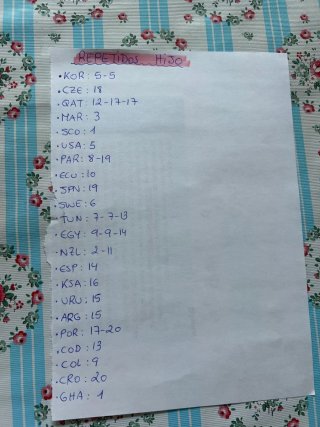 REPETIDOS HIJO
• KOR: 5-5
• CZE: 18
• QAT: 12-17-17
• MAR: 3
• SCO: 1
• USA: 5
• PAR: 8-19
• ECU: 10
• JPN: 19
• SWE: 6
• TUN: 7-7-13
• EGY: 9-9-14
• NZL: 2-11
• ESP: 14
• KSA: 16
• URU: 15
• ARG: 15
• POR: 17-20
• COD: 13
• COL: 9
• CRO: 20
• GHA: 1